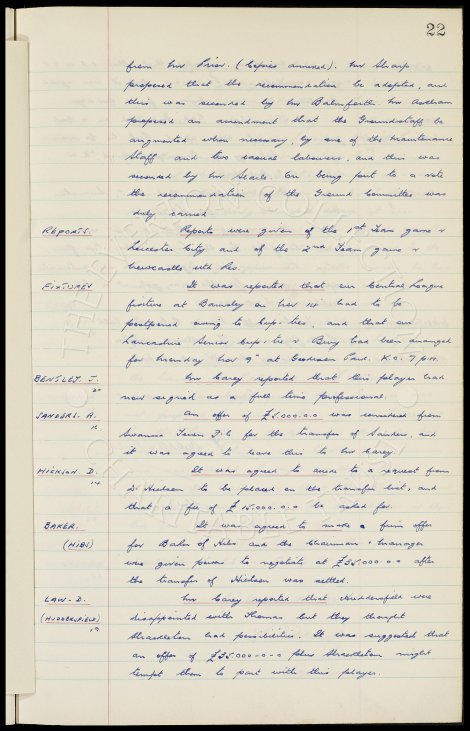 22
from Mr Prior. (Copies annexed). Mr Sharp
proposed that the recommendation be adopted, and
this was seconded by Mr Balmforth. Mr Askham
proposed an amendment that the Groundstaff be
augmented when necessary, by one of the maintenance
staff and two casual labourers, and this was
seconded by Mr Searle. On being put to a vote
the recommendation of the Ground Committee was
duly carried.
REPORTS. Reports were given of the 1st Team game v
Leicester City and of the 2nd Team game v
Newcastle Utd Res.
FIXTURES It was reported that our Central League
fixture at Barnsley on Nov 14 had to be
postponed owing to Cup-ties, and that our
Lancashire Senior Cup-tie v Bury had been arranged
for Monday Nov 9th at Goodison Park. K.O. 7 pm.
BENTLEY. J. Mr Carey reported that this player had
now signed as a full time professional.
SANDERS. A. An offer of £5.000.0.0 was considered from
Swansea Town F.C. for the transfer of Sanders, and
it was agreed to leave this to Mr Carey.
HICKSON. D. It was agreed to accede to a request from
D. Hickson to be placed on the transfer list, and
14
that a fee of £15.000.0.0 be asked for.
BAKER. It was agreed to make a firm offer
(HIBS) for Baker of Hibs and the Chairman & Manager
were given power to negotiate at £35.000.0.0 after
the transfer of Hickson was settled.
LAW. D. Mr Carey reported that Huddersfield were
(HUDDERSFIELD) disappointed with Thomas but they thought
19
Shackleton had possibilities. It was suggested that
an offer of £35.000-0-0 plus Shackleton might
tempt them to part with this player.